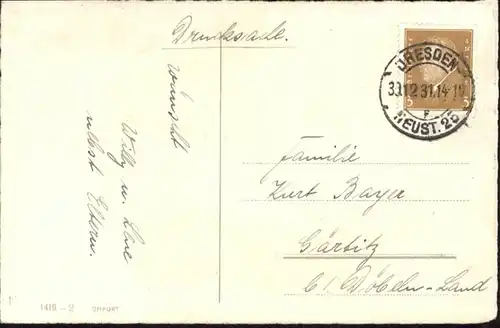 Drucksache.
wünscht
Willy u. Lene
nebst Eltern.
DRESDEN
30.12.31.14-19
F
NEUST. 25
3
3
Familie
Kurt Bayer
Gärtitz
b/. Döbeln-Land
1416-2